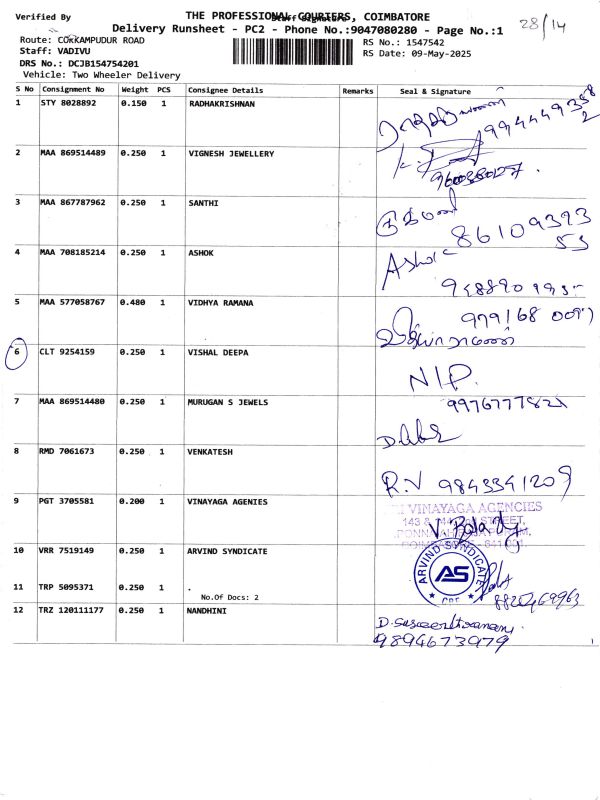 Verified By
THE PROFESSIONAL COURIERS, COIMBATORE
28/14
Delivery Runsheet - PC2 - Phone No.:9047080280 - Page No.:1
Route: COKKAMPUDUR ROAD
RS No.: 1547542
Staff: VADIVU
RS Date: 09-May-2025
DRS No.: DCJB154754201
Vehicle: Two Wheeler Delivery
S No Consignment No Weight PCS Consignee Details Remarks Seal & Signature
1 STY 8028892 0.150 1 RADHAKRISHNAN
2 MAA 869514489 0.250 1 VIGNESH JEWELLERY
3 MAA 867787962 0.250 1 SANTHI
8610939353
4 MAA 708185214 0.250 1 ASHOK
Ashok
5 MAA 577058767 0.480 1 VIDHYA RAMANA
6 CLT 9254159 0.250 1 VISHAL DEEPA
N/P.
7 MAA 869514480 0.250 1 MURUGAN S JEWELS
9976777821
8 RMD 7061673 0.250 1 VENKATESH
R.V 9843341209
9 PGT 3705581 0.200 1 VINAYAGA AGENIES
VINAYAGA AGENCIES
10 VRR 7519149 0.250 1 ARVIND SYNDICATE
ARVIND SYNDICATE
AS
11 TRP 5095371 0.250 1 .
No.Of Docs: 2
12 TRZ 120111177 0.250 1 NANDHINI
9894673979
1